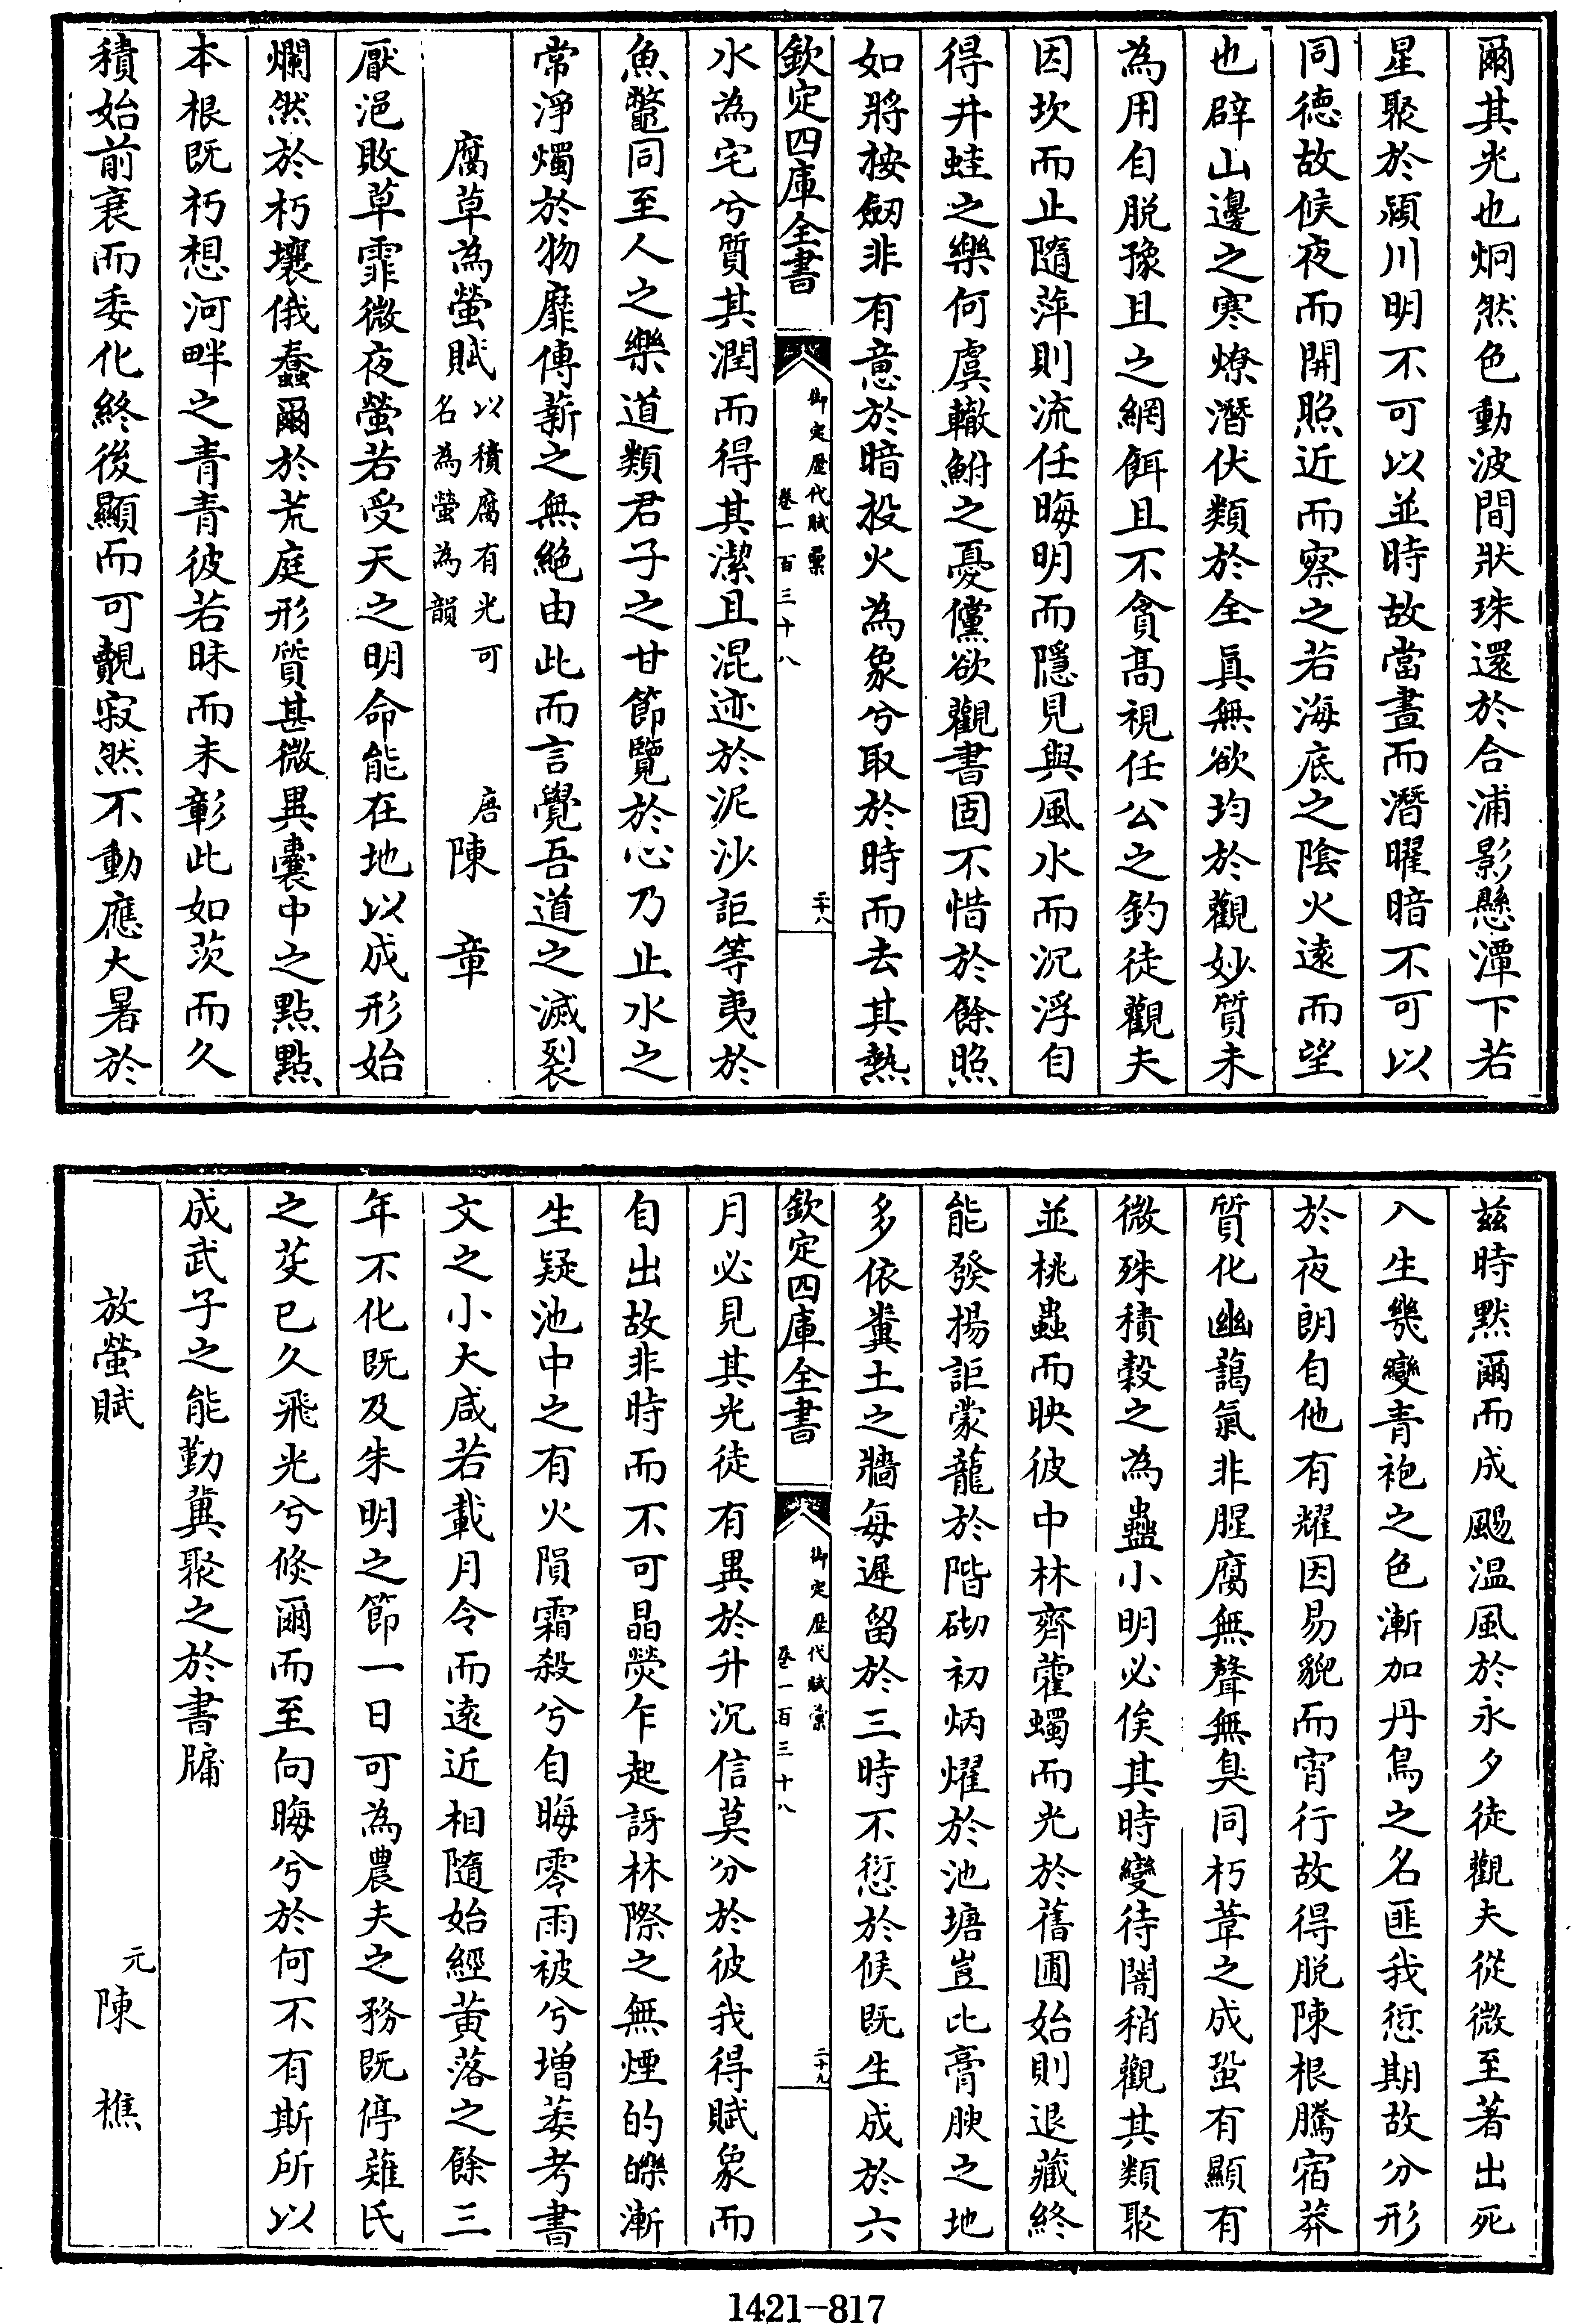 爾其光也炯然色動波間狀珠還於合浦影懸潭下若
星聚於潁川明不可以並時故當晝而潛曜暗不可以
同德故候夜而開照近而察之若海底之陰火遠而望
也辟山邊之寒燎潛伏類於全眞無欲均於觀妙質未
為用自脱豫且之網餌且不貪髙視任公之釣徒觀夫
因坎而止隨萍則流任晦明而隱見與風水而沉浮自
得井蛙之樂何虞轍鮒之憂儻欲觀書固不惜於餘照
如將按劒非有意於暗投火為象兮取於時而去其熱
欽定四庫全書
御定歴代賦彙
卷一百三十八
二十八
水為宅兮質其潤而得其潔且混迹於泥沙詎等夷於
魚鼈同至人之樂道類君子之甘節覽於心乃止水之
常淨燭於物靡傳薪之無絶由此而言覺吾道之滅裂
腐草為螢賦
以積腐有光可
名為螢為韻
唐
陳章
厭浥敗草霏微夜螢若受天之明命能在地以成形始
爛然於朽壤俄蠢爾於荒庭形質甚微異囊中之點點
本根既朽想河畔之青青彼若昧而未彰此如茨而久
積始前衰而委化終後顯而可覿寂然不動應大暑於
兹時黙爾而成颺温風於永夕徒觀夫從微至著出死
入生幾變青袍之色漸加丹鳥之名匪我愆期故分形
於夜朗自他有耀因易貌而宵行故得脱陳根騰宿莽
質化幽藹氣非腥腐無聲無臭同朽葦之成蛩有顯有
微殊積穀之為蠱小明必俟其時變待闇稍觀其類聚
並桃蟲而映彼中林齊藿蠋而光於舊圃始則退藏終
能發揚詎蒙蘢於階砌初炳燿於池塘豈比膏腴之地
多依糞土之牆每遲留於三時不愆於候既生成於六
欽定四庫全書
御定歴代賦彙
卷一百三十八
二十九
月必見其光徒有異於升沉信莫分於彼我得賦象而
自出故非時而不可晶熒乍起訝林際之無煙的皪漸
生疑池中之有火隕霜殺兮自晦零雨被兮増萎考書
文之小大咸若載月令而逺近相隨始經黄落之餘三
年不化既及朱明之節一日可為農夫之務既停薙氏
之芟已久飛光兮倐爾而至向晦兮於何不有斯所以
成武子之能勤冀聚之於書牖
放螢賦
元
陳樵
1421-817